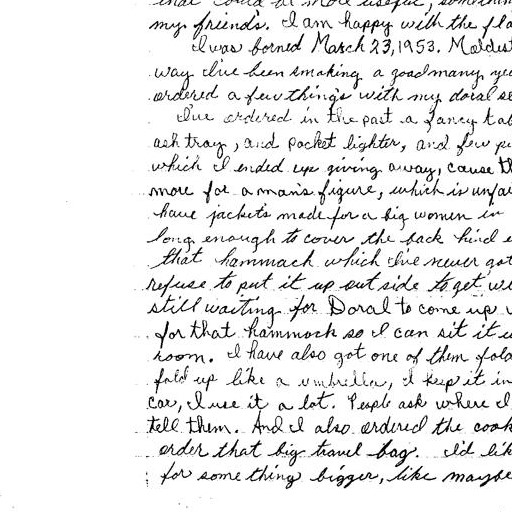 that could be more useful, somethin
my friends. I am happy with the fla
I was borned March 23, 1953.
way I've been smoking a good many ye
ordered a few things with my doral se
I've ordered in the past a fancy tab
ash tray, and pocket lighter, and few
which I ended up giving away, cause th
more for a man's figure, which is unfai
have jackets made for a big women in
long enough to cover the back hind e
that hammach which I've never got
refuse to put it up out side to get we
still waiting for Doral to come up w
for that hammock so I can sit it u
room. I have also got one of them fold
fold up like a umbrella, I keep it in
car, I use it a lot. People ask where I
tell them. And I also ordered the cook
order that big travel bag. I'd lik
for something bigger, like maybe